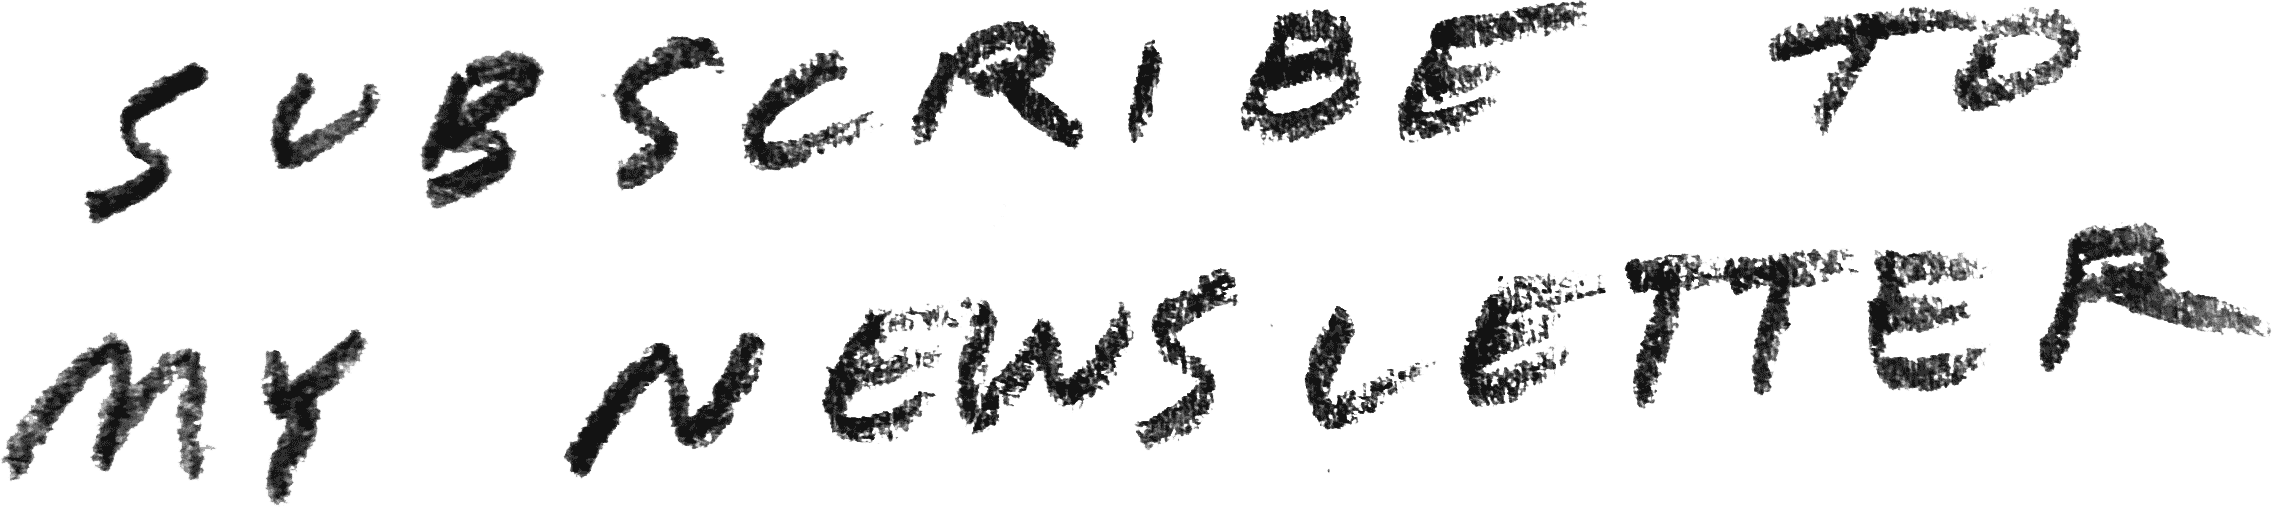 SUBSCRIBE TO
MY NEWSLETTER